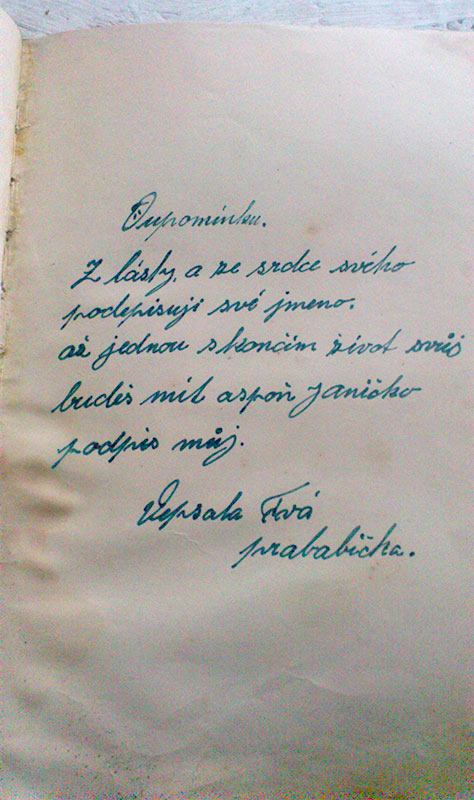 Vupomínku.
Z lásky, a ze srdce svého
podepisuji své jmeno.
až jednou skončím život svůj
budeš mít aspoň Janičko
podpis můj.
Vepsala Tvá
prababička.